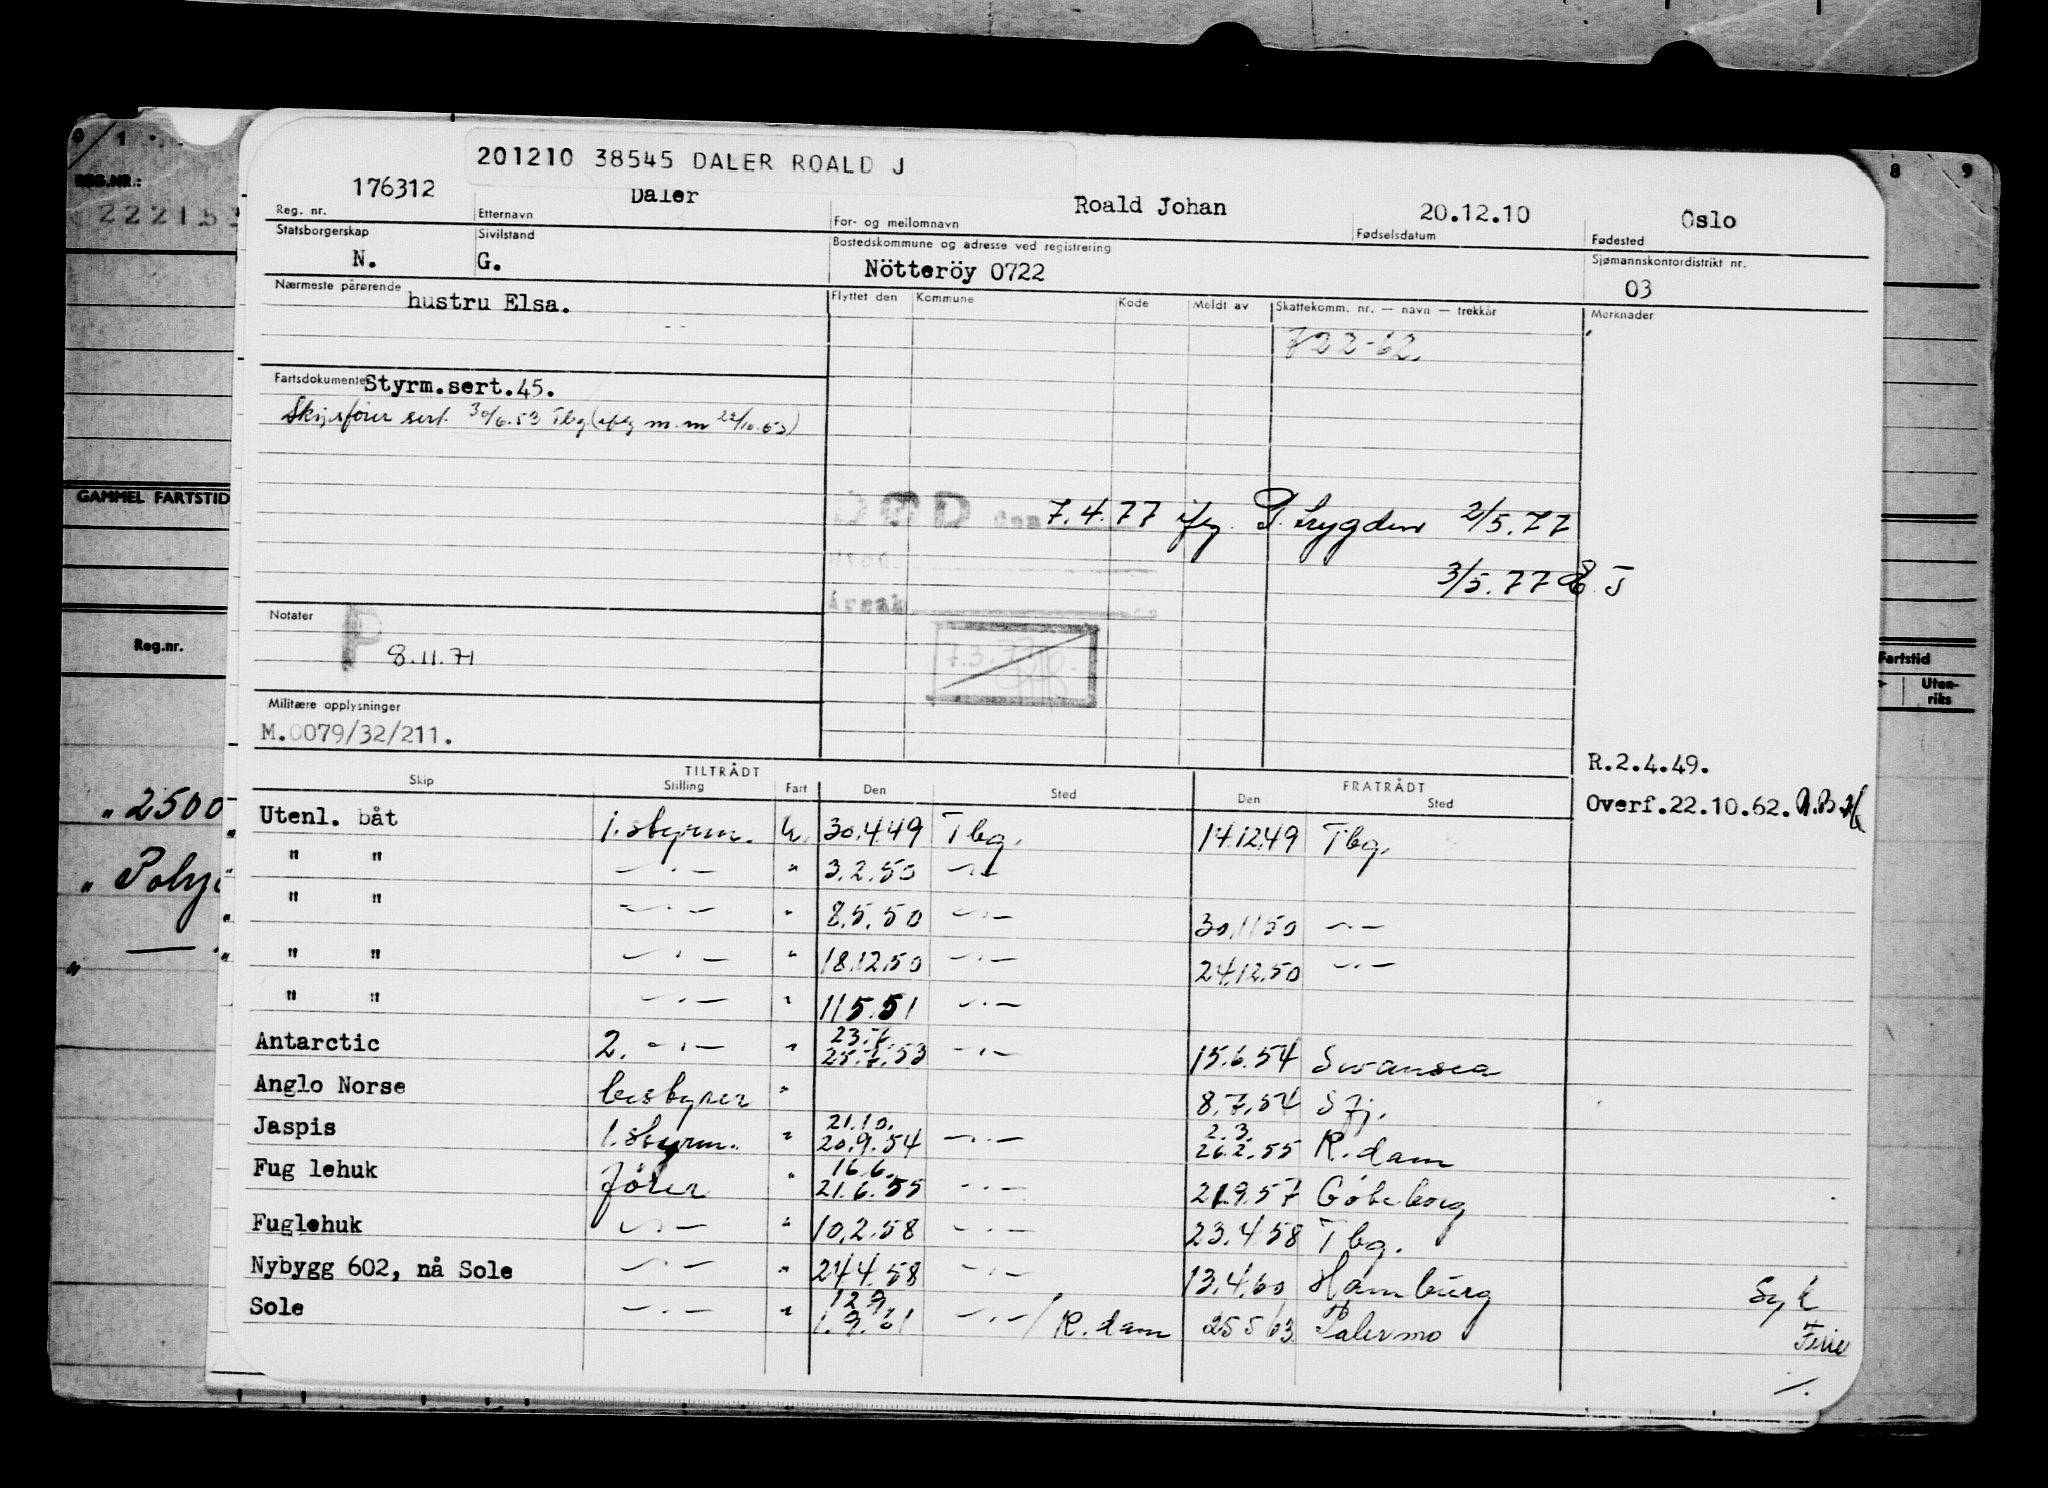 0 1
8 9
REG.NR.:
22215
GAMMEL FARTSTID
Reg.nr.
Fartstid
Uten-
riks
" 2500
201210 38545 DALER ROALD J
176312 Daler Roald Johan 20.12.10 Oslo
Reg. nr. Etternavn For- og mellomnavn Fødselsdatum Fødested
Statsborgerskap Sivilstand Bostedskommune og adresse ved registrering Sjømannskontordistrikt nr.
N. G. Nötteröy 0722 03
Nærmeste pårørende Flyttet den Kommune Kode Meldt av Skattekomm. nr. — navn — trekkår Merknader
hustru Elsa.
722-62.
Fartsdokumenter Styrm.sert.45.
Skipsfører sert. 30/6.53 Tbg. m.m 22/10.63)
DØD den 7.4.77 ifg. P. Trygden 2/5.77
3/5.77
Årsak
Notater
P 8.11.71
Militære opplysninger
M.0079/32/211.
R.2.4.49.
TILTRÅDT FRATRÅDT
Skip Stilling Fart Den Sted Den Sted
Overf.22.10.62.
Utenl. båt 1. styrm. U. 30.4.49 Tbg. 17.12.49 Tbg.
" " —·— " 3.2.50 —·—
" " —·— " 8.5.50 —·— 30.11.50 —·—
" " —·— " 18.12.50 —·— 24.12.50 —·—
" " —·— " 11.5.51 —·—
Antarctic 2. —·— " 23.7. 25.7.53 —·— 15.6.54 Swansea
Anglo Norse bestyrer " 8.7.54 Sfj.
Jaspis 1. styrm. " 21.10. 20.9.54 —·— 2.3. 26.2.55 R.dam
Fug lehuk fører " 16.6. 21.6.55 —·— 21.9.57 Göteborg
Fuglehuk —·— " 10.2.58 —·— 23.4.58 Tbg.
Nybygg 602, nå Sole —·— " 24.4.58 —·— 13.4.60 Hamburg Syk
Sole —·— " 12.9. 1.9.61 —·—/R.dam 25.5.63 Palermo Ferie